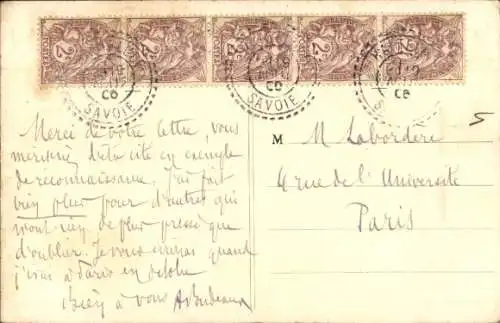 SAVOIE
SAVOIE
06
06
Merci de votre lettre, vous
méritez d'être cité en exemple
de reconnaissance, j'ai fait
bien plus pour d'autres qui
n'ont rien de plus pressé que
d'oublier. Je vous écrirai quand
j'irai à Paris en
Bien à vous
M M Labordère
4 rue de l'Université
Paris
5